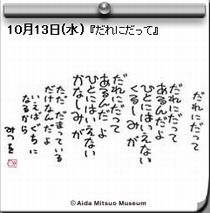 10月13日(水)『だれにだって』
だれにだって
だれにだって
あるんだよ
ひとにはいえない
くるしみが
だれにだって
あるんだよ
ひとにはいえない
かなしみが
ただ だまっている
だけなんだよ
いえばぐちに
なるから
みつを
©Aida Mitsuo Museum